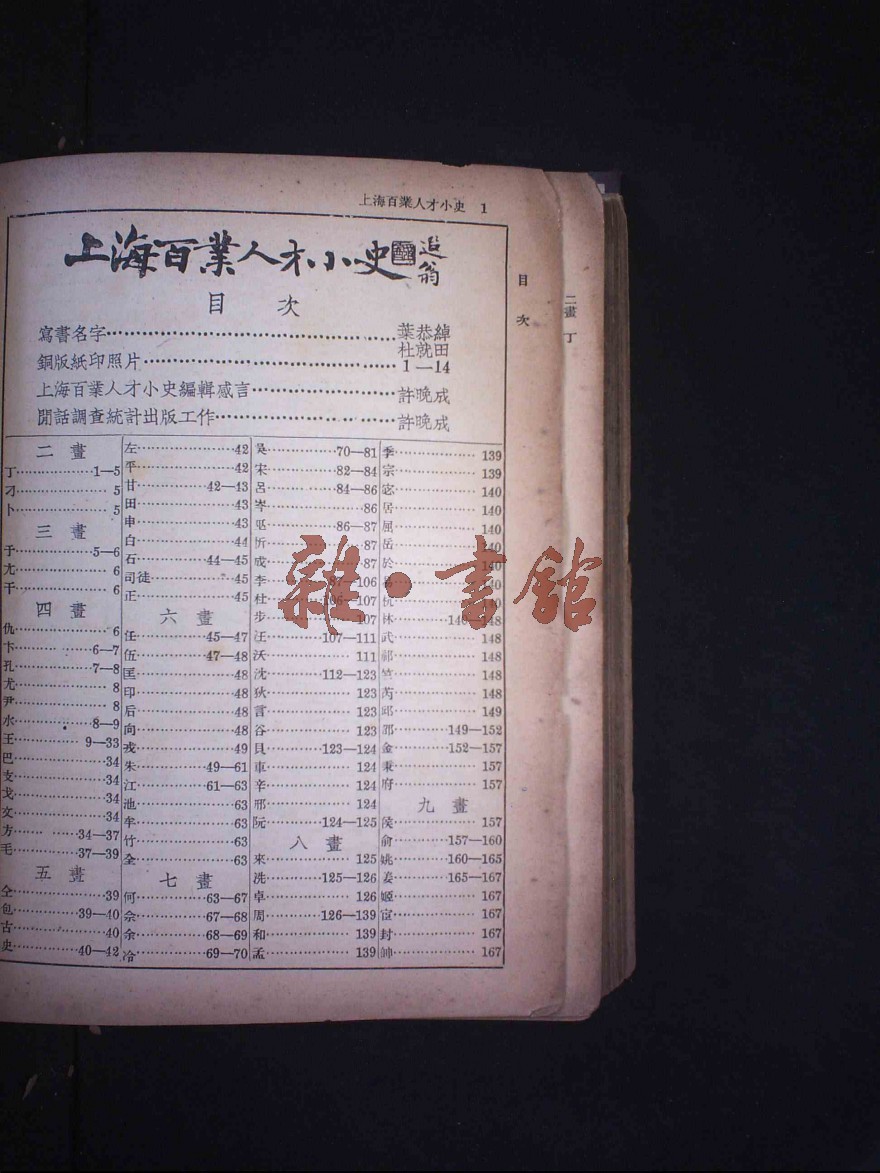 上海百業人才小史 1
上海百業人才小史 遐翁
目 次
寫書名字……葉恭綽
杜就田
銅版紙印照片……1—14
上海百業人才小史編輯感言……許晚成
閒話調查統計出版工作……許晚成
二 畫
丁……1—5
刁……5
卜……5
三 畫
于……5—6
尢……6
干……6
四 畫
仇……6
卞……6—7
孔……7—8
尤……8
尹……8
水……8—9
王……9—33
巴……34
支……34
戈……34
文……34
方……34—37
毛……37—39
五 畫
仝……39
包……39—40
古……40
史……40—42
左……42
平……42
甘……42—43
田……43
申……43
白……44
石……44—45
司徒……45
正……45
六 畫
任……45—47
伍……47—48
匡……48
印……48
后……48
向……48
戎……49
朱……49—61
江……61—63
池……63
牟……63
竹……63
全……63
七 畫
何……63—67
佘……67—68
余……68—69
冷……69—70
吳……70—81
宋……82—84
呂……84—86
岑……86
巫……86—87
忻……87
成……87
李……87—106
杜……106—107
步……107
汪……107—111
沃……111
沈……112—123
狄……123
言……123
谷……123
貝……123—124
車……124
辛……124
邢……124
阮……124—125
八 畫
來……125
冼……125—126
卓……126
周……126—139
和……139
孟……139
季……139
宗……139
宓……140
居……140
屈……140
岳……140
於……140
易……140
杭……140
林……140—148
武……148
祁……148
竺……148
芮……148
邱……149
邵……149—152
金……152—157
秉……157
府……157
九 畫
侯……157
俞……157—160
姚……160—165
姜……165—167
姬……167
宣……167
封……167
帥……167
目 次
二畫 丁
雜·書館